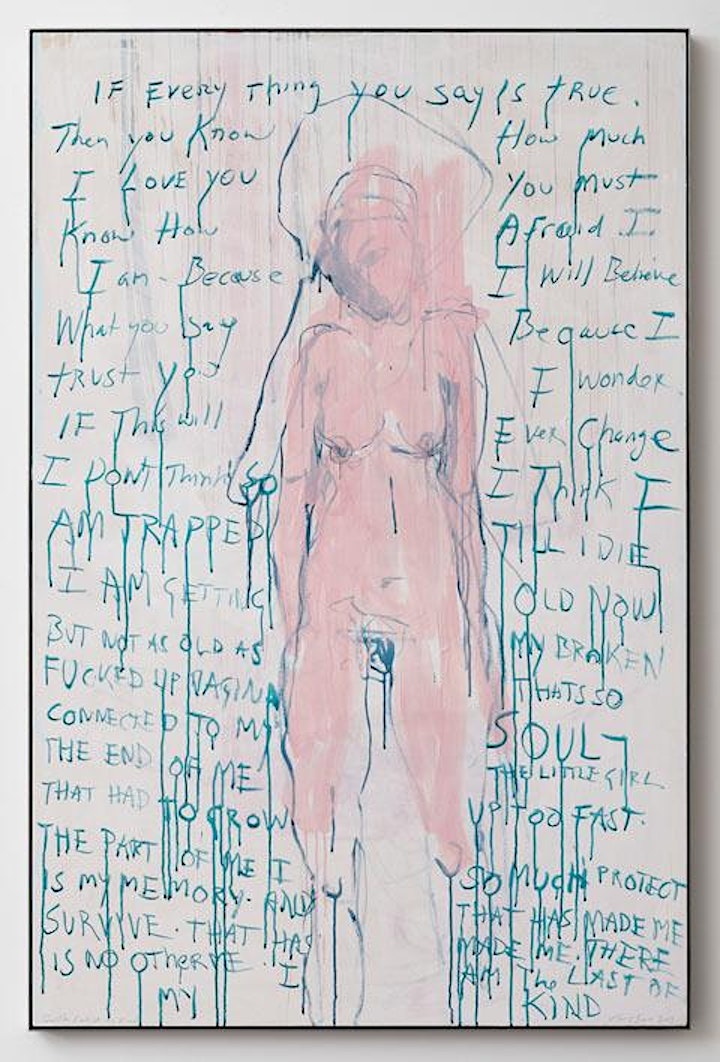 IF Every Thing you say Is TRUE.
Then you Know How much
I LOVE YOU You must
Know How Afraid I
I am - Because I Will Believe
What you say Because I
TRUST you I wonder.
IF This will Ever Change
I DONT Think So I Think I
AM TRAPPED TILL I DIE
I AM GETTING OLD NOW
BUT NOT AS OLD AS MY BROKEN
FUCKED UP VAGINA THATS SO
CONNECTED TO MY SOUL -
THE END OF ME THE LITTLE GIRL
THAT HAD TO GROW UP TOO FAST.
THE PART OF ME I SO MUCH PROTECT
IS MY MEMORY. AND THAT HAS MADE ME
SURVIVE. THAT HAS MADE ME. THERE
IS NO I AM The LAST OF
MY KIND